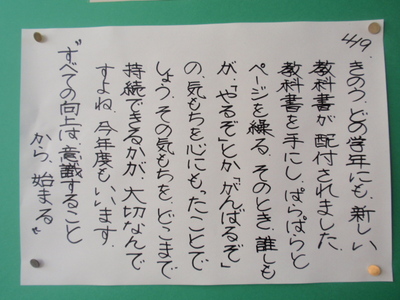 4/9.
きのう、どの学年にも、新しい
教科書が配付されました。
教科書を手にし、ぱらぱらと
ページを繰る。そのとき、誰しも
が、「やるぞ」とか「がんばるぞ」
の、気もちを心にもったことで
しょう。その気もちを、どこまで
持続できるかが、大切なんで
すよね。今年度もいいます。
"すべての向上は、意識すること
から、始まる"